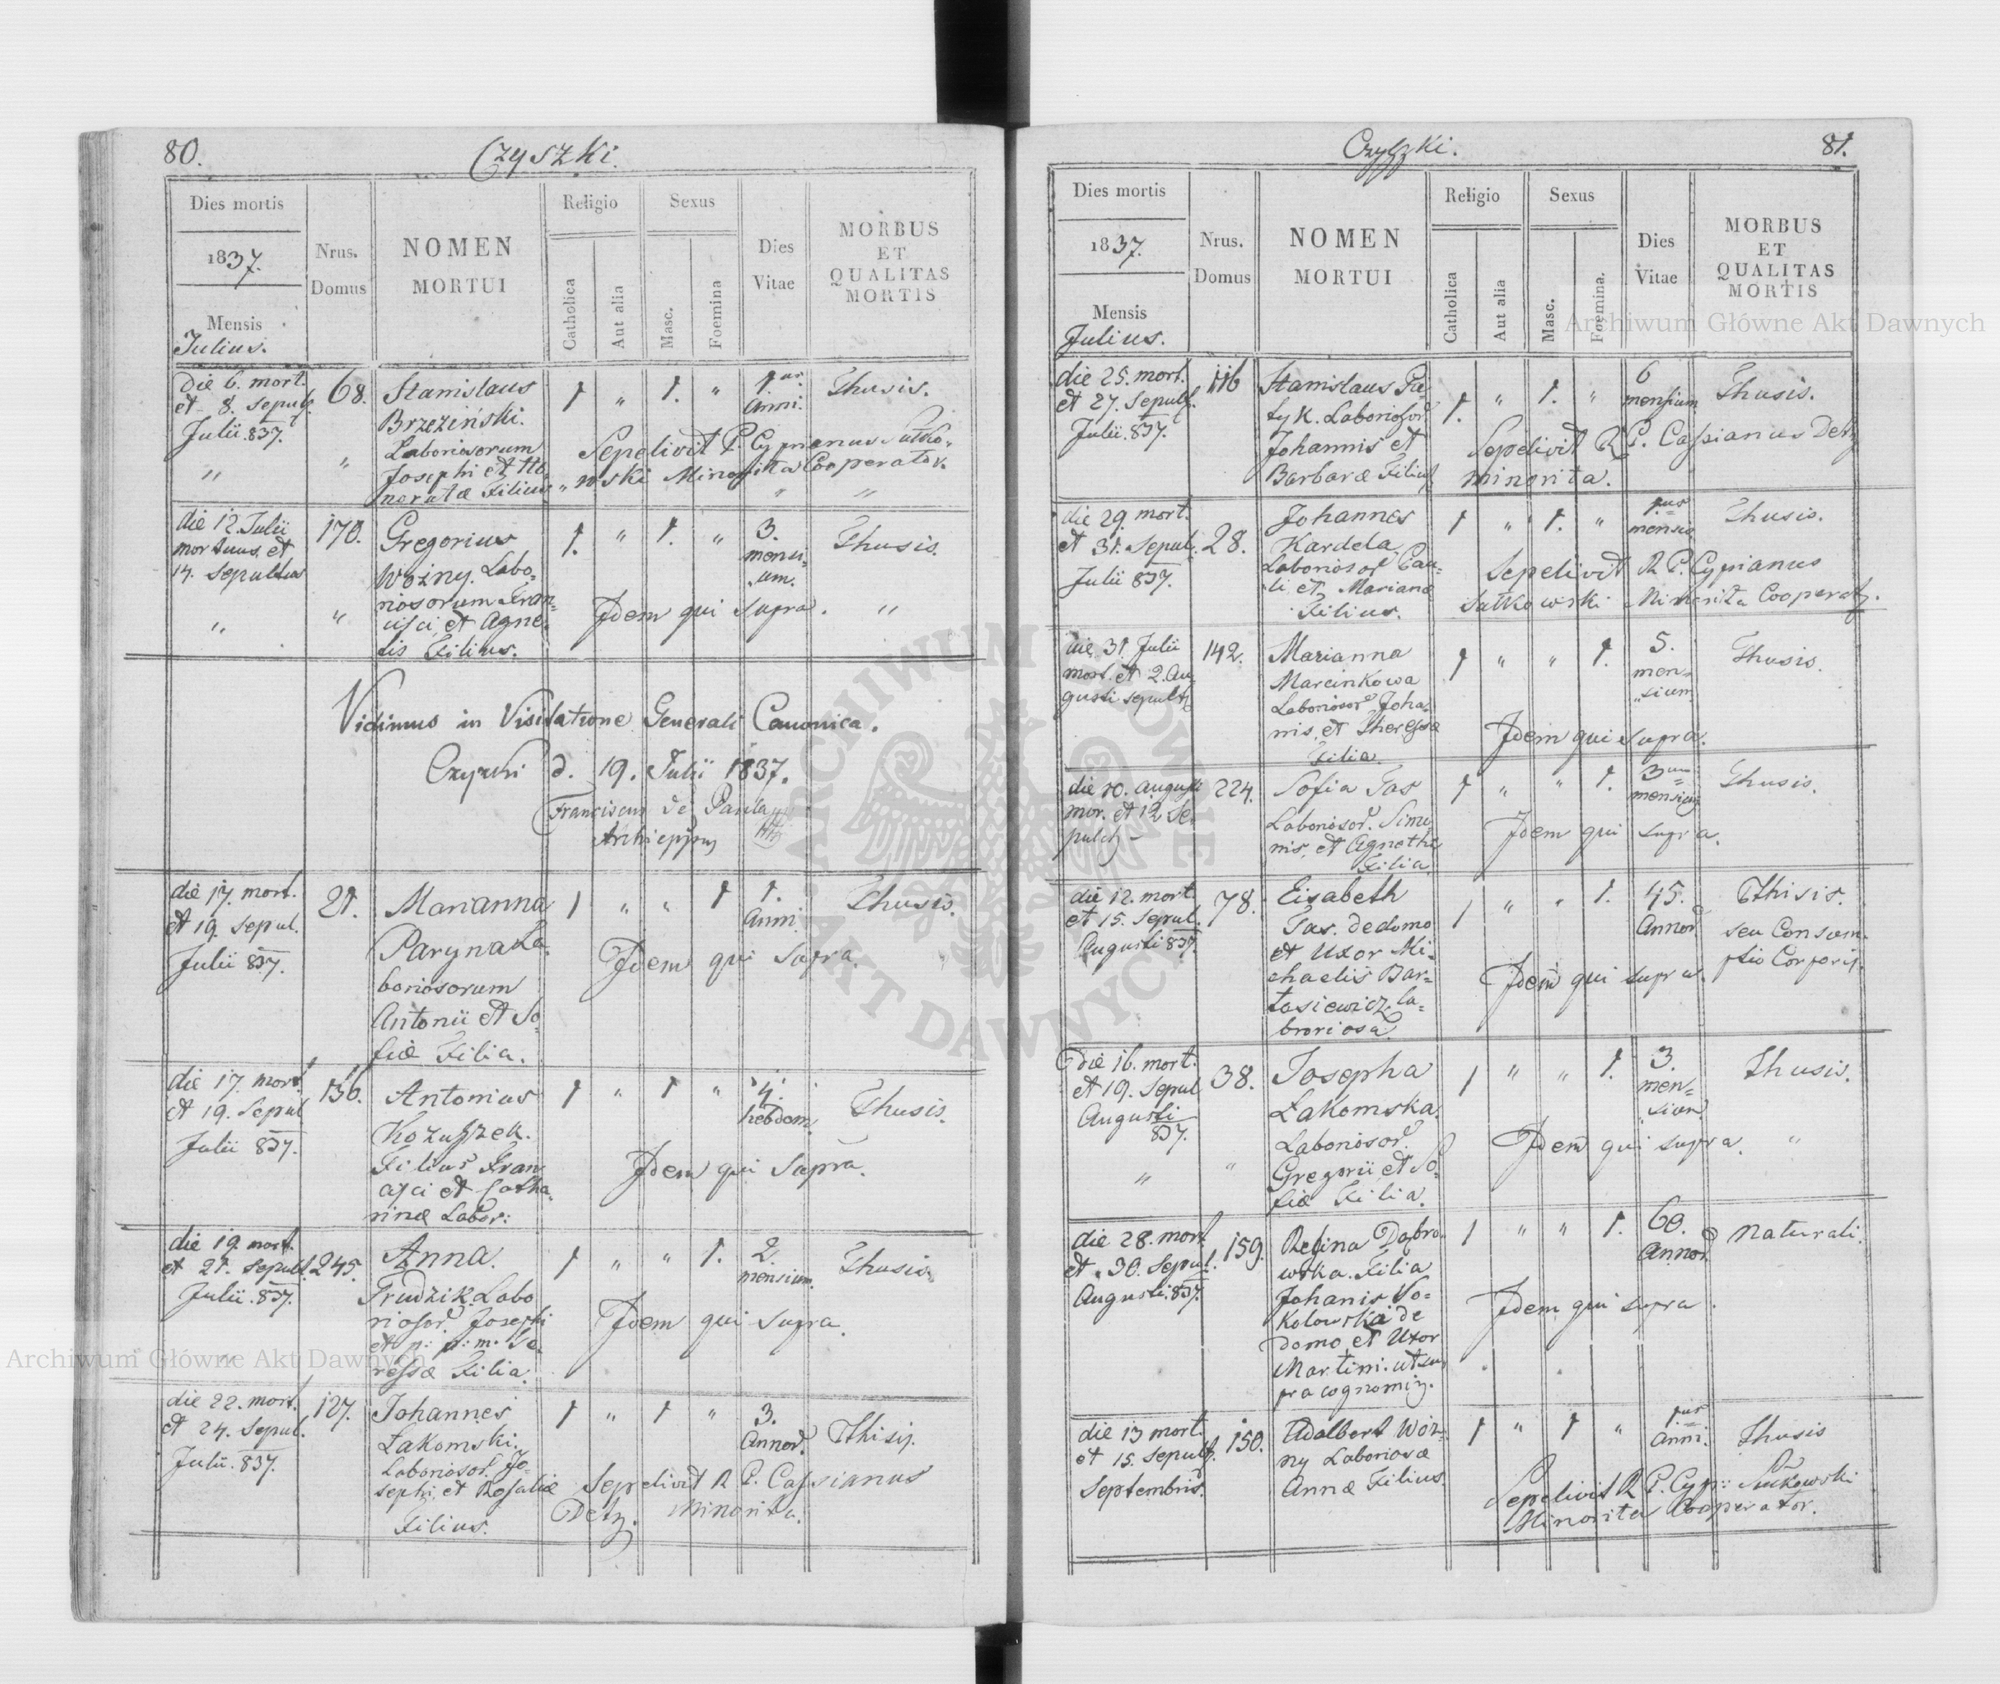 80.
Czyszki.
Dies mortis
1837.
Mensis
Julius.
Nrus.
Domus
NOMEN
MORTUI
Religio
Catholica
Aut alia
Sexus
Masc.
Foemina
Dies
Vitae
MORBUS
ET
QUALITAS
MORTIS
die 6. mort.
et 8. Sepul.
Julii 837.
68.
Stanislaus
Brzeziński.
Laboriosorum
Josephi et Ho-
noratæ Filius
1 " 1. "
1us
Anni.
Thusis.
Sepelivit P. Cyprianus Sutko-
wski Minorita Cooperator.
die 12. Julii
mortuus et
14. Sepultus
170.
Gregorius
Wozny. Labo-
riosorum Fran-
cisci, et Agne-
tis Filius.
1. " 1. "
3.
mensi-
um.
Thusis.
Idem qui supra.
Vidimus in Visitatione Generali Canonica.
Czyszki d. 19. Julii 1837.
Franciscus de Paula
Archieppus
die 17. mort.
et 19. Sepul.
Julii 837.
21.
Marianna
Paryna La-
boriosorum
Antonii et So-
fiæ Filia.
1 " " 1
1.
Anni.
Thusis.
Idem qui supra.
die 17. mort.
et 19. Sepul
Julii 837.
130.
Antonius
Kozuszek.
Filius Fran
cisci et Catha-
rinæ Labor:
1 " 1 "
4.
hebdom.
Thusis.
Idem qui supra.
die 19. mort.
et 21. Sepul.
Julii. 837.
245.
Anna.
Trudzik. Labo
riosor. Josephi
et p: p: m: Te-
ressæ Filia.
1 " " 1.
2.
mensium.
Thusis.
Idem qui supra.
die 22. mort.
et 24. Sepul.
Julii. 837.
127.
Johannes
Łakomski.
Laboriosor. Jo-
sephi, et Rosaliæ
Filius.
1 " 1 "
3.
Annor.
Thisis.
Sepelivit R P. Cassianus
Detz. Minorita.
Czyszki.
81.
Dies mortis
1837.
Mensis
Julius.
Nrus.
Domus
NOMEN
MORTUI
Religio
Catholica
Aut alia
Sexus
Masc.
Foemina.
Dies
Vitae
MORBUS
ET
QUALITAS
MORTIS
die 25. mort.
et 27. Sepul.
Julii. 837.
116
Stanislaus Pa-
tyk. Laboriosor
Johannis et
Barbaræ Filius
1. " 1. "
6
mensium
Thusis.
Sepelivit R P. Cassianus Detz
minorita.
die 29. mort.
et 31. Sepul.
Julii 837.
28.
Johannes
Kardela.
Laboriosor Pau-
li, et Mariana
Filius.
1 " 1. "
1us
mensis
Thusis.
Sepelivit R P. Cyprianus
Sutkowski Minorita Cooperat.
die 31. Julii
mort. et 2. Au
gusti sepult
142.
Marianna
Marcinkowa
Laboriosor Joha-
nis, et Theressa
Filia.
1 " " 1.
5.
men-
sium
Thusis.
Idem qui supra.
die 10. augusti
mor. et 12 Se-
pult
224.
Sofia Tas
Laboriosor. Simo
nis, et Agnethis
Filia.
1 " " 1.
3um
mensium
Thusis.
Idem qui supra.
die 12. mort
et 15. Sepul.
Augusti 837.
78.
Eisabeth
Tas. de domo
et Uxor Mi-
chaelis Bar-
tosiewicz La-
broriosa.
1 " " 1.
45.
Annor.
Thisis.
seu Consum-
ptio Corporis.
Idem qui supra.
die 16. mort.
et 19. Sepul
Augusti
837.
38.
Josepha
Łakomska.
Laboriosor.
Gregorii, et So-
fiæ Filia.
1 " " 1.
3.
men-
sium
Thusis.
Idem qui supra.
die 28. mort
et 30. Sepul.
Augusti. 837.
159.
Regina Dąbro-
wska. Filia
Johanis So-
kolowski de
domo, et Uxor
Martini. ut su-
pra cognomin.
1 " " 1.
60.
Annor
Naturali.
Idem qui supra.
die 13 mort.
et 15. Sepul.
Septembris.
150.
Adalbert Woz-
ny Laboriosæ
Annæ Filius.
1 " 1 "
1us
Anni.
Thusis
Sepelivit R P. Cypr: Sutkowski
Minorita Cooperator.
Archiwum Główne Akt Dawnych
Archiwum Główne Akt Dawnych
ARCHIWUM GŁÓWNE AKT DAWNYCH